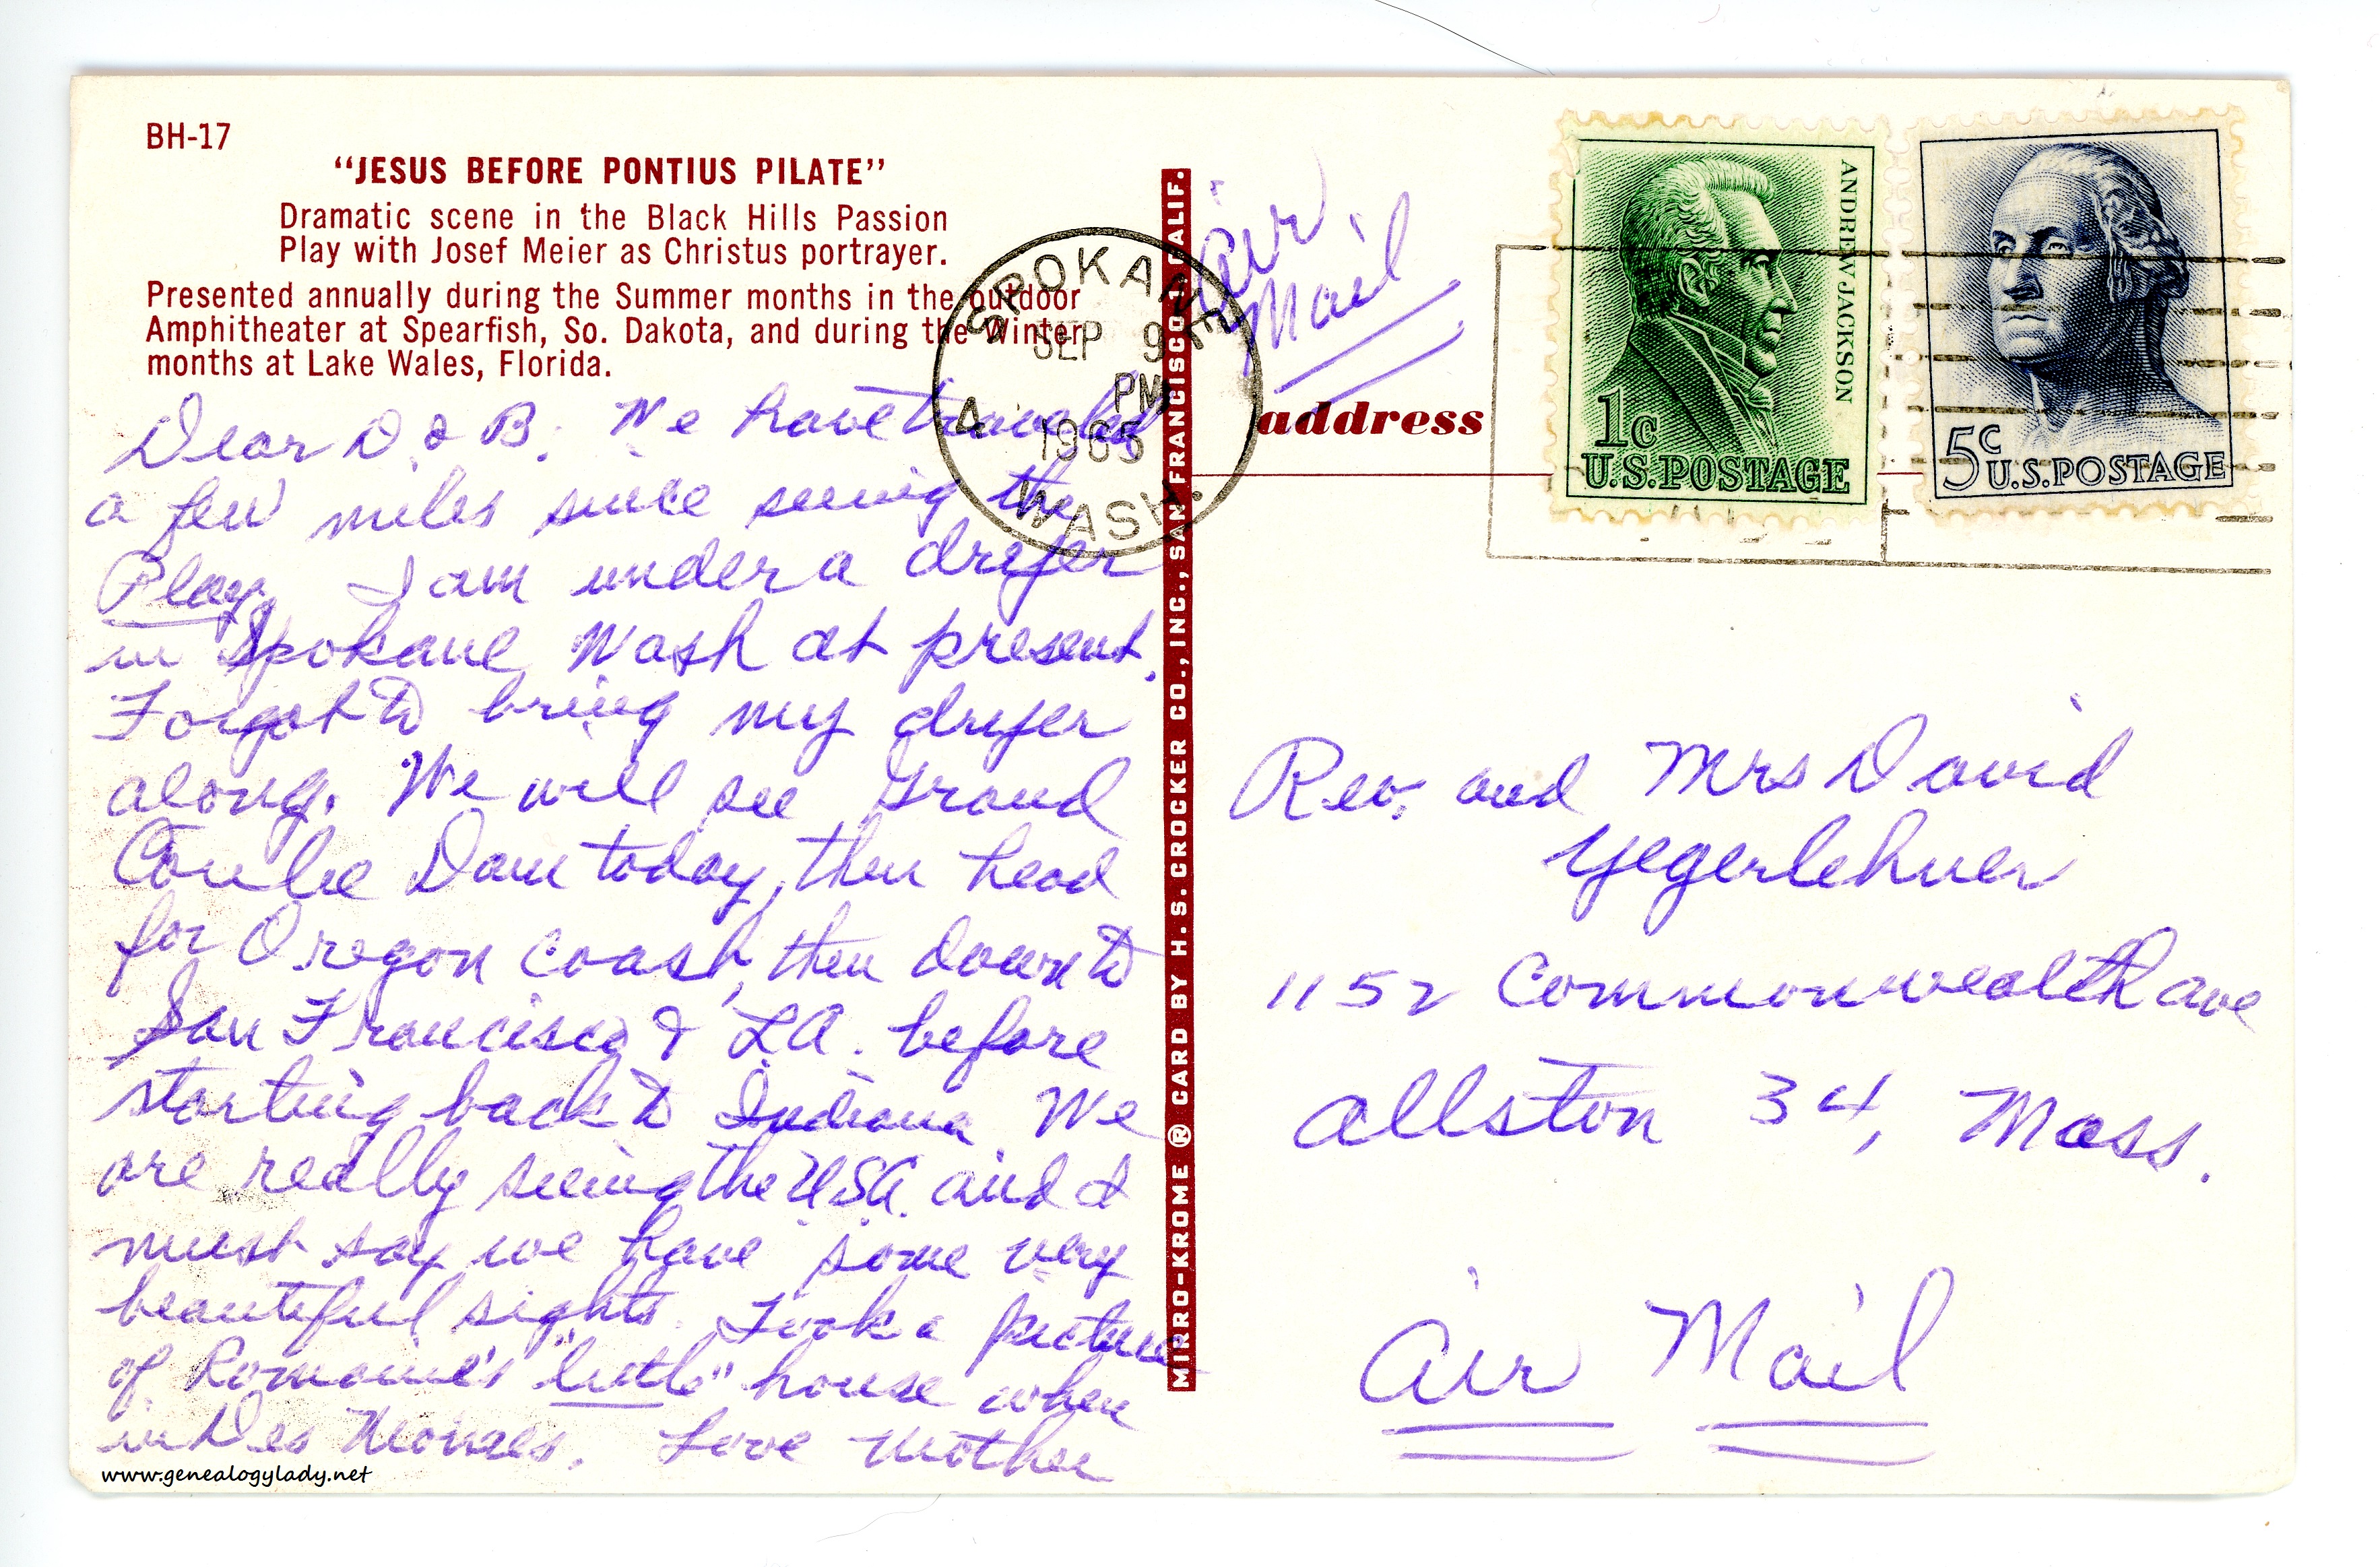 BH-17
"JESUS BEFORE PONTIUS PILATE"
Dramatic scene in the Black Hills Passion
Play with Josef Meier as Christus portrayer.
Presented annually during the Summer months in the outdoor
Amphitheater at Spearfish, So. Dakota, and during the Winter
months at Lake Wales, Florida.
Dear D. & B. We have traveled
a few miles since seeing the
Play. I am under a dryer
in Spokane Wash at present.
Forgot to bring my dryer
along. We will see Grand
Coulee Dam today, then head
for Oregon coast, then down to
San Francisco & LA. before
starting back to Indiana We
are really seeing the USA. and I
must say we have some very
beautiful sights. Took a picture
of Romaine's "little" house when
in Des Moines. Love Mother
www.genealogylady.net
SPOKANE
SEP 9
PM
WASH.
MIRRO-KROME ® CARD BY H. S. CROCKER CO., INC., SAN FRANCISCO 1, CALIF.
Air
Mail
address
ANDREW JACKSON
1c
U.S. POSTAGE
5c
U.S. POSTAGE
Rev. and Mrs David
Yegerlehner
1152 Commonwealth ave
Allston 34, Mass.
Air Mail